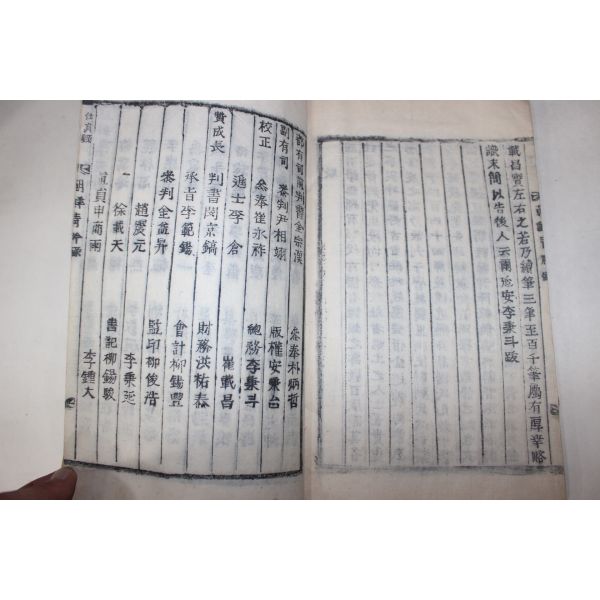 載昌實左右之若乃續筆三筆至百千筆應有厚業略
識末簡以告後人云爾延安李秉斗跋
都有司 議判書金宗漢
副有司 參判尹相翊
校正 參奉崔永祚
進士李倉
贊成長 判書閔京鎬
承旨李範錫
參判金益昇
趙慶元
徐載天
申雨雨
參奉朴炳哲
版權安秉台
總務李秉斗
崔載昌
財務洪祐泰
會計柳錫豐
監印柳俊浩
李秉延
書記柳錫駿
李鍾大
任員錄